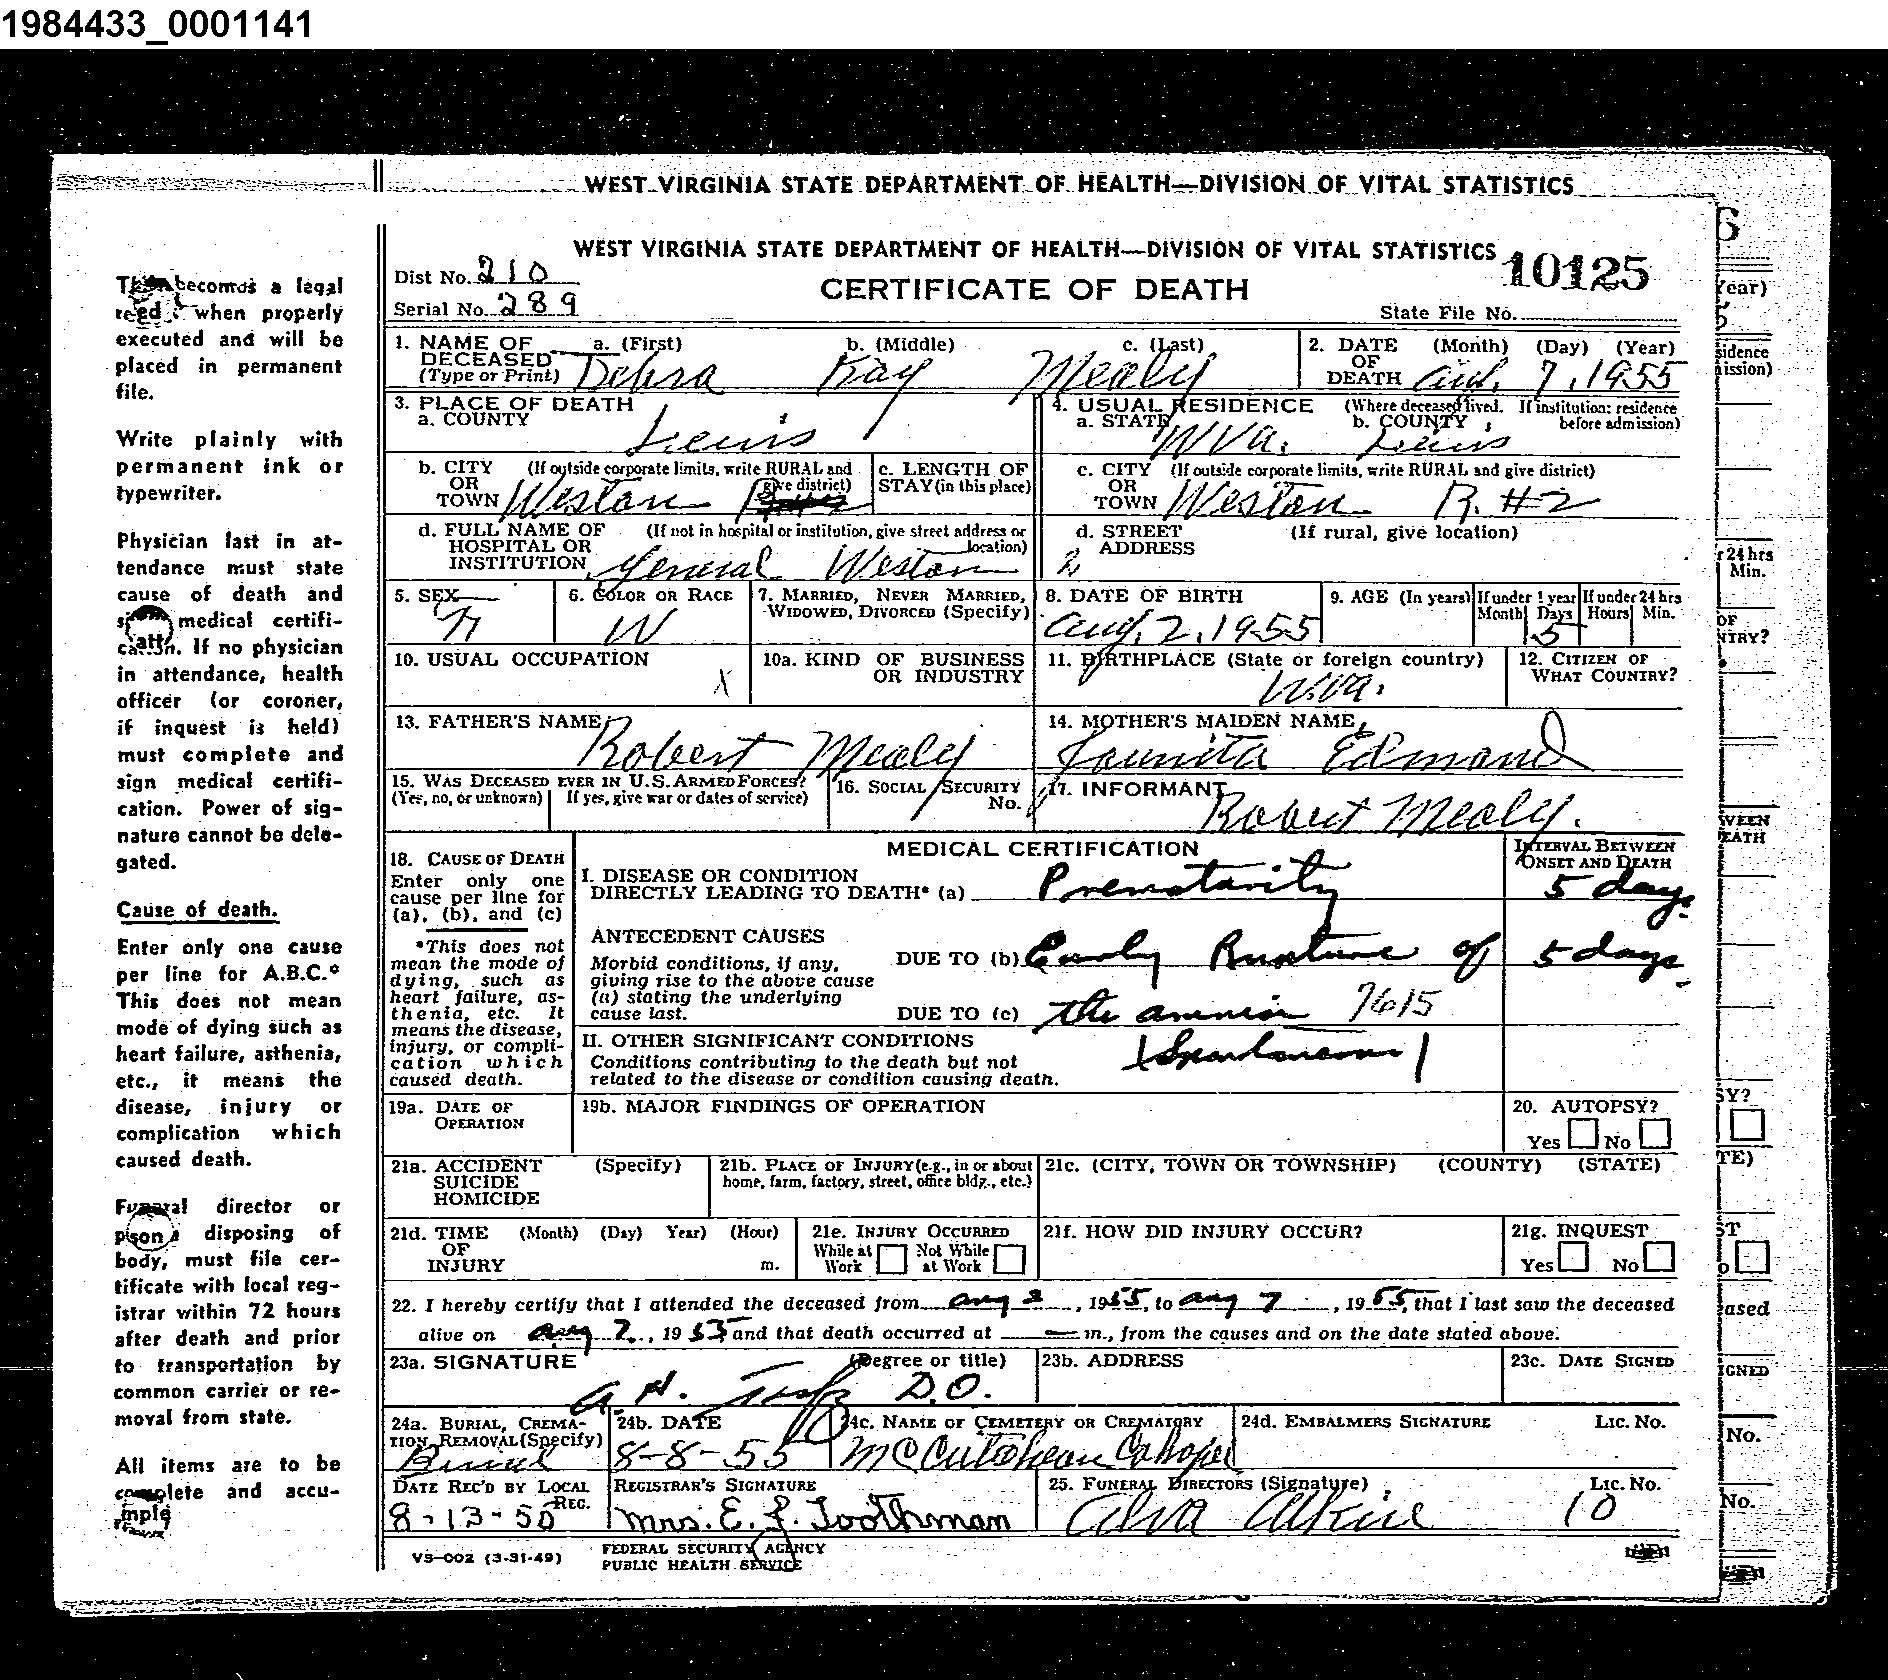 1984433_0001141
WEST VIRGINIA STATE DEPARTMENT OF HEALTH—DIVISION OF VITAL STATISTICS
WEST VIRGINIA STATE DEPARTMENT OF HEALTH—DIVISION OF VITAL STATISTICS
10125
Dist No. 210
CERTIFICATE OF DEATH
Serial No. 289
State File No.
This becomes a legal
when properly
executed and will be
placed in permanent
file.
Write plainly with
permanent ink or
typewriter.
Physician last in at-
tendance must state
cause of death and
medical certifi-
If no physician
in attendance, health
officer (or coroner,
if inquest is held)
must complete and
sign medical certifi-
cation. Power of sig-
nature cannot be dele-
gated.
Cause of death.
Enter only one cause
per line for A.B.C.*
This does not mean
mode of dying such as
heart failure, asthenia,
etc., it means the
disease, injury or
complication which
caused death.
Funeral director or
disposing of
body, must file cer-
tificate with local reg-
istrar within 72 hours
after death and prior
to transportation by
common carrier or re-
moval from state.
All items are to be
complete and accu-
1. NAME OF DECEASED (Type or Print) a. (First) b. (Middle) c. (Last)
Debra Kay Mealy
2. DATE OF DEATH (Month) (Day) (Year)
Aug. 7, 1955
3. PLACE OF DEATH
a. COUNTY Lewis
4. USUAL RESIDENCE (Where deceased lived. If institution: residence before admission)
a. STATE W Va. b. COUNTY Lewis
b. CITY OR TOWN (If outside corporate limits, write RURAL and give district)
Weston
c. LENGTH OF STAY (in this place)
c. CITY OR TOWN (If outside corporate limits, write RURAL and give district)
Weston R. #2
d. FULL NAME OF HOSPITAL OR INSTITUTION (If not in hospital or institution, give street address or location)
General Weston
d. STREET ADDRESS (If rural, give location)
2
5. SEX
6. COLOR OR RACE W
7. MARRIED, NEVER MARRIED, WIDOWED, DIVORCED (Specify)
8. DATE OF BIRTH Aug. 2, 1955
9. AGE (In years) If under 1 year Month Days 5 If under 24 hrs Hours Min.
10. USUAL OCCUPATION X
10a. KIND OF BUSINESS OR INDUSTRY
11. BIRTHPLACE (State or foreign country) W.Va.
12. CITIZEN OF WHAT COUNTRY?
13. FATHER'S NAME Robert Mealy
14. MOTHER'S MAIDEN NAME Jaunita Edmond
15. WAS DECEASED EVER IN U.S. ARMED FORCES?
(Yes, no, or unknown) If yes, give war or dates of service)
16. SOCIAL SECURITY No.
17. INFORMANT Robert Mealy.
MEDICAL CERTIFICATION
INTERVAL BETWEEN ONSET AND DEATH
18. CAUSE OF DEATH
Enter only one
cause per line for
(a), (b), and (c)
*This does not
mean the mode of
dying, such as
heart failure, as-
thenia, etc. It
means the disease,
injury, or compli-
cation which
caused death.
I. DISEASE OR CONDITION
DIRECTLY LEADING TO DEATH* (a) Prematurity 5 days
ANTECEDENT CAUSES
Morbid conditions, if any,
giving rise to the above cause
(a) stating the underlying
cause last.
DUE TO (b) Early Rupture of 5 days
DUE TO (c) the amnion 7615
(Spontaneous)
II. OTHER SIGNIFICANT CONDITIONS
Conditions contributing to the death but not
related to the disease or condition causing death.
19a. DATE OF OPERATION
19b. MAJOR FINDINGS OF OPERATION
20. AUTOPSY?
Yes No
21a. ACCIDENT SUICIDE HOMICIDE (Specify)
21b. PLACE OF INJURY (e.g., in or about home, farm, factory, street, office bldg., etc.)
21c. (CITY, TOWN OR TOWNSHIP) (COUNTY) (STATE)
21d. TIME OF INJURY (Month) (Day) Year) (Hour) m.
21e. INJURY OCCURRED
While at Work Not While at Work
21f. HOW DID INJURY OCCUR?
21g. INQUEST
Yes No
22. I hereby certify that I attended the deceased from Aug 2, 1955, to Aug 7, 1955, that I last saw the deceased
alive on Aug 7, 1955 and that death occurred at — m., from the causes and on the date stated above.
23a. SIGNATURE (Degree or title)
A. H. D.O.
23b. ADDRESS
23c. DATE SIGNED
24a. BURIAL, CREMATION, REMOVAL (Specify)
Burial
24b. DATE
8-8-55
24c. NAME OF CEMETERY OR CREMATORY
McCutchean
24d. EMBALMERS SIGNATURE LIC. NO.
DATE REC'D BY LOCAL REG.
8-13-55
REGISTRAR'S SIGNATURE
Mrs. E. J. Toothman
25. FUNERAL DIRECTORS (Signature) LIC. NO.
Alva Alkire 10
VS-002 (3-31-49)
FEDERAL SECURITY AGENCY
PUBLIC HEALTH SERVICE